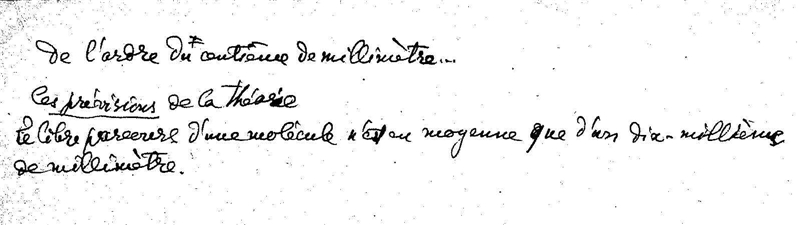 de l'ordre du centième de millimètre...
les prévisions de la théorie
Le libre parcours d'une molécule n'est en moyenne que d'un dix-millième
de millimètre.